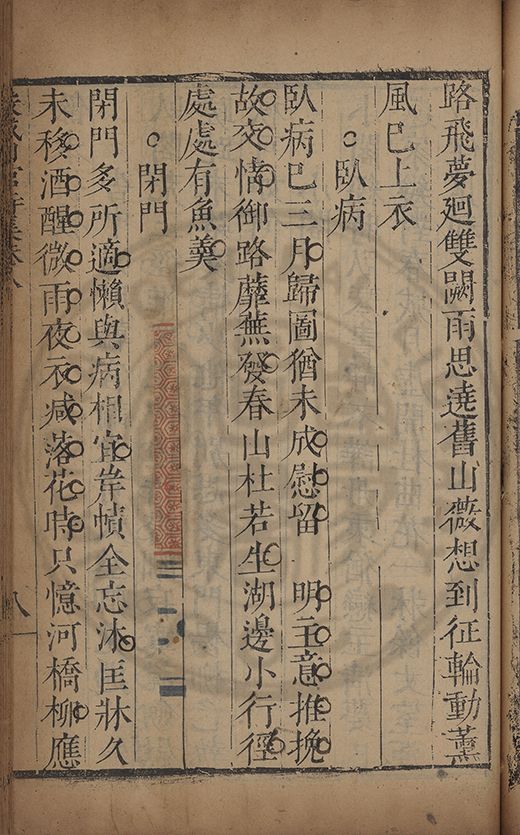 路飛夢廻雙闕雨思遶舊山薇想到征輪動薰
風已上衣
○臥病
臥病已三月歸圖猶未成慰留　明主意推挽
故交情御路蘼蕪發春山杜若生湖邊小行徑
處處有魚羹
○閉門
閉門多所適懶與病相宜岸幘全忘沐匡牀久
未移酒醒微雨夜衣減落花時只憶河橋柳應
八